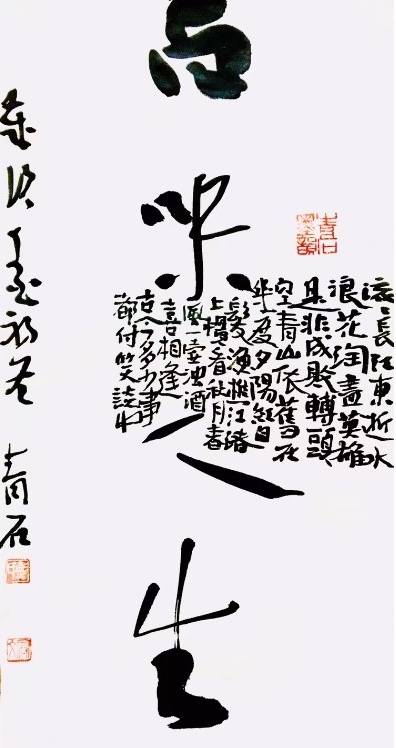 品味人生
滚〻長江東逝水
浪花淘盡英雄
是非成敗轉頭
空青山依舊在
幾度夕陽紅白
髮漁樵江渚
上慣看秋月春
風一壺濁酒
喜相逢
古今多少事
都付笑談中
歲次
青石
青石墨韻